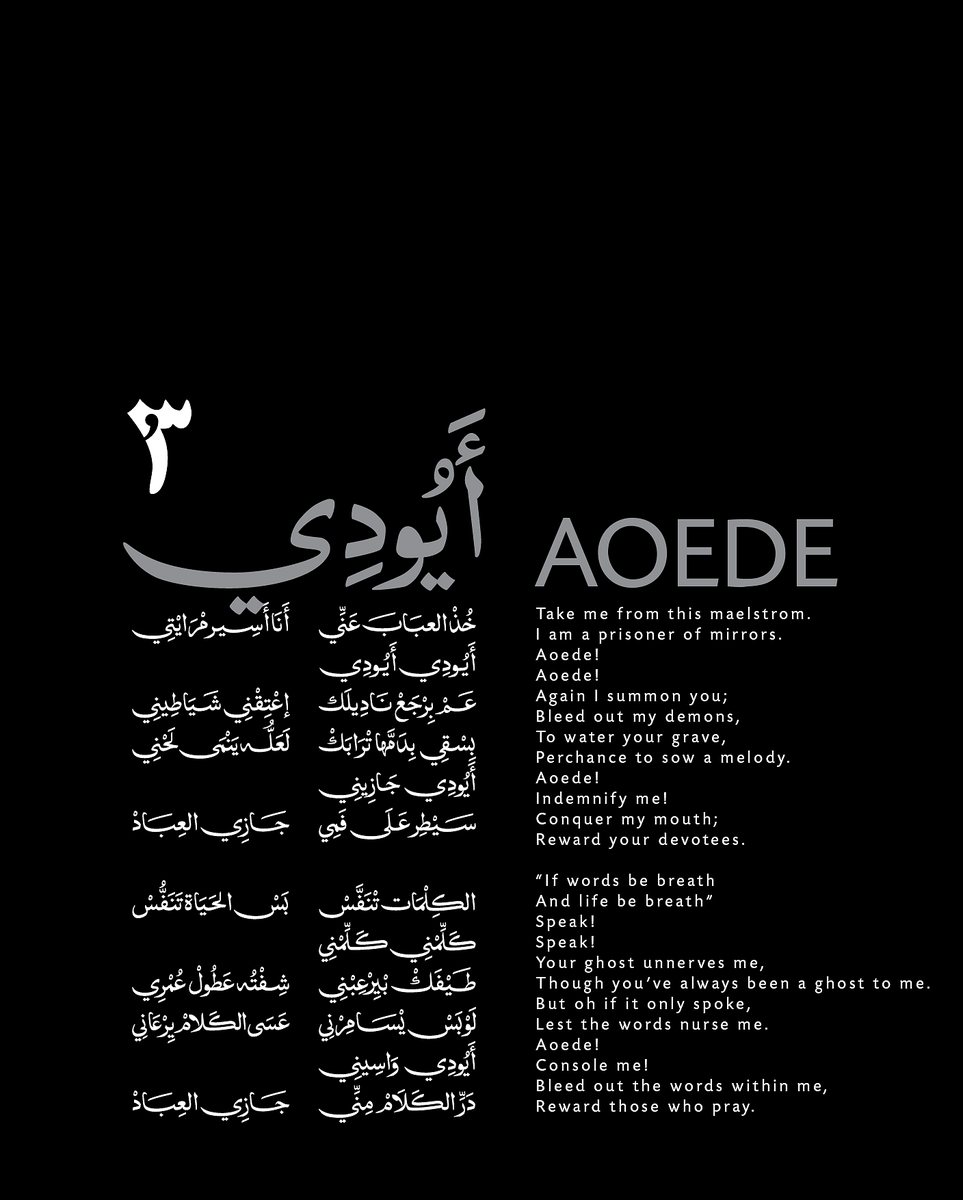 ٣
أَيُودِي
خُذْ العبَابَ عَنِّي أَنَا أَسِير مْرَايْتِي
أَيُودِي أَيُودِي
عَمْ بِرْجَعْ نَادِيلَك إعْتِقْنِي شَيَاطِينِي
بِسْقِي بِدَمَّهَا تْرَابَكْ لَعَلُّه يَنْمَى لَحْنِي
أَيُودِي جَازِينِي
سَيْطِر عَلَى فَمِي جَازِي العِبَادْ
الكِلْمَات تْنَفَّسْ بَسْ الحَيَاة تَنَفُّسْ
كَلِّمْنِي كَلِّمْنِي
طَيْفَكْ بْيِرْعِبْنِي شِفْتُه عَطُولْ عُمْرِي
لَوْ بَسْ يْسَامِرْنِي عَسَى الكَلَامْ يِرْعَانِي
أَيُودِي وَاسِينِي
دَرِّ الكَلَامْ مِنِّي جَازِي العِبَادْ
AOEDE
Take me from this maelstrom.
I am a prisoner of mirrors.
Aoede!
Aoede!
Again I summon you;
Bleed out my demons,
To water your grave,
Perchance to sow a melody.
Aoede!
Indemnify me!
Conquer my mouth;
Reward your devotees.
“If words be breath
And life be breath”
Speak!
Speak!
Your ghost unnerves me,
Though you’ve always been a ghost to me.
But oh if it only spoke,
Lest the words nurse me.
Aoede!
Console me!
Bleed out the words within me,
Reward those who pray.